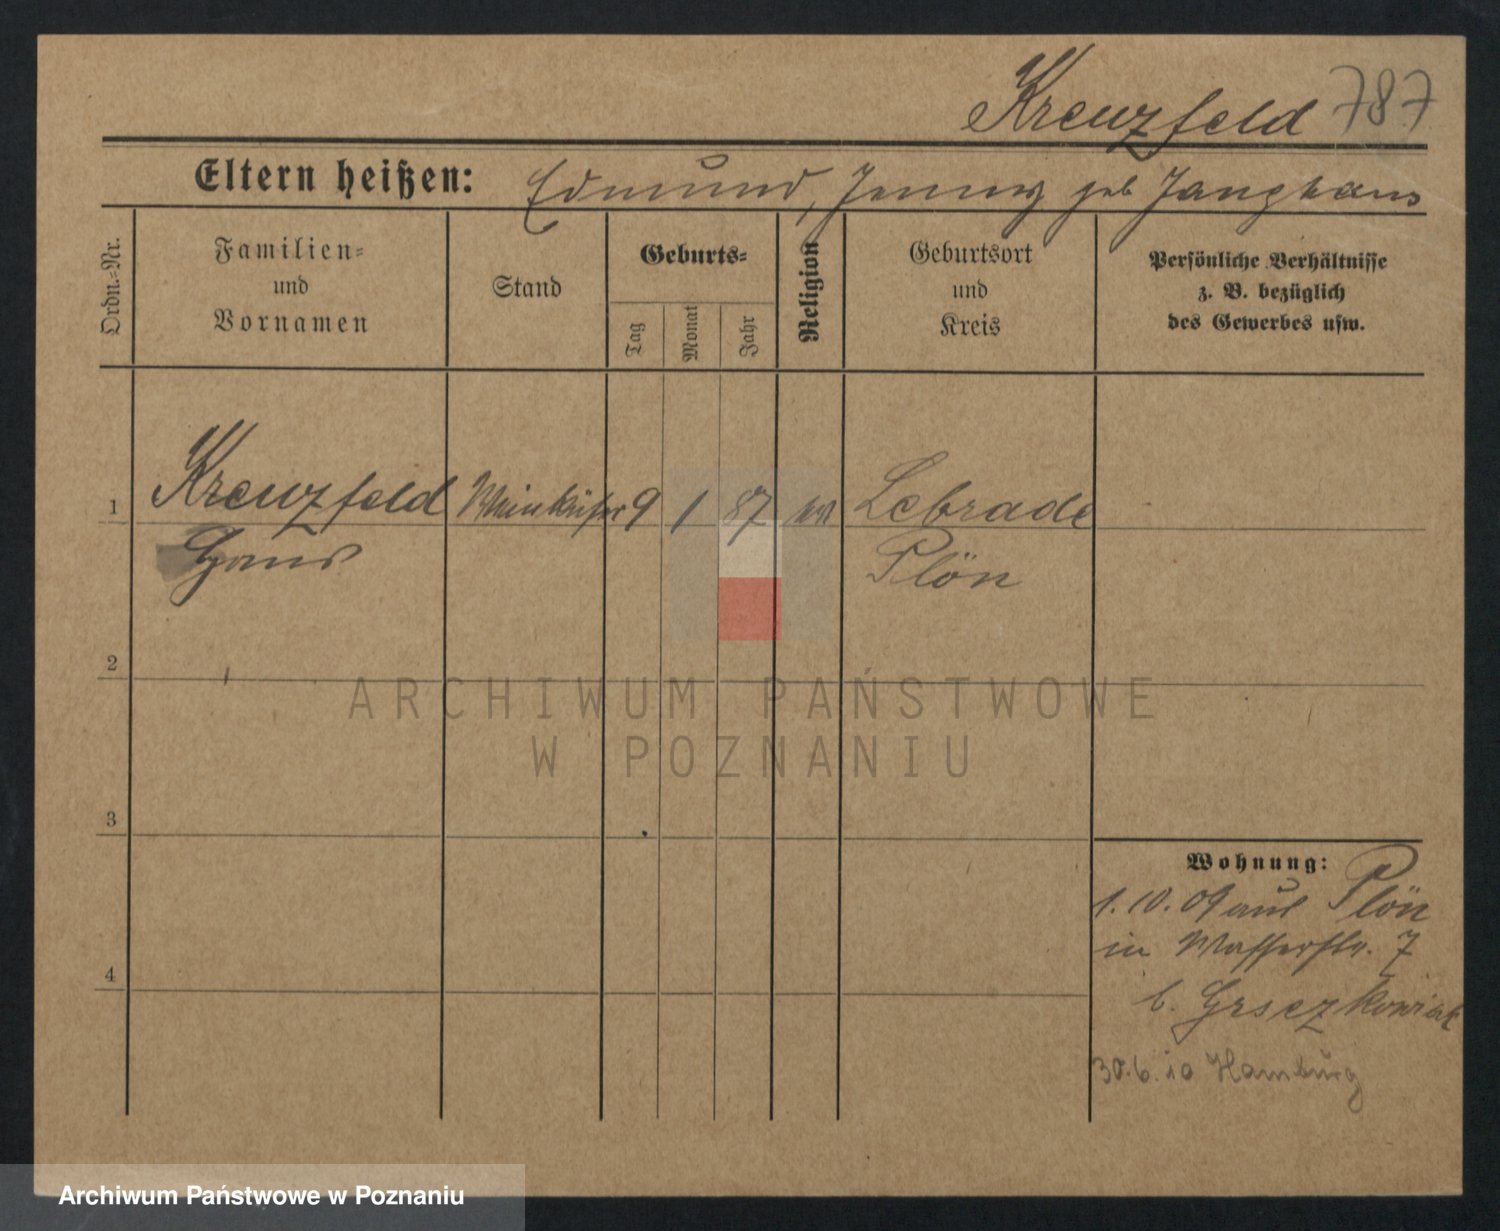 Kreuzfeld 787
Eltern heißen: Edmund, Jenny geb Junghans
Ordn.-Nr.
Familien-
und
Vornamen
Stand
Geburts-
Tag
Monat
Jahr
Religion
Geburtsort
und
Kreis
Persönliche Verhältnisse
z. B. bezüglich
des Gewerbes usw.
1 Kreuzfeld Weinküfer 9 1 87 ev Lebrade
Hans Plön
2
3
4
ARCHIWUM PAŃSTWOWE
W POZNANIU
Wohnung:
1.10.09 aus Plön
in Wasserstr. 7
b. Grszkowiak
30.6.10 Hamburg
Archiwum Państwowe w Poznaniu